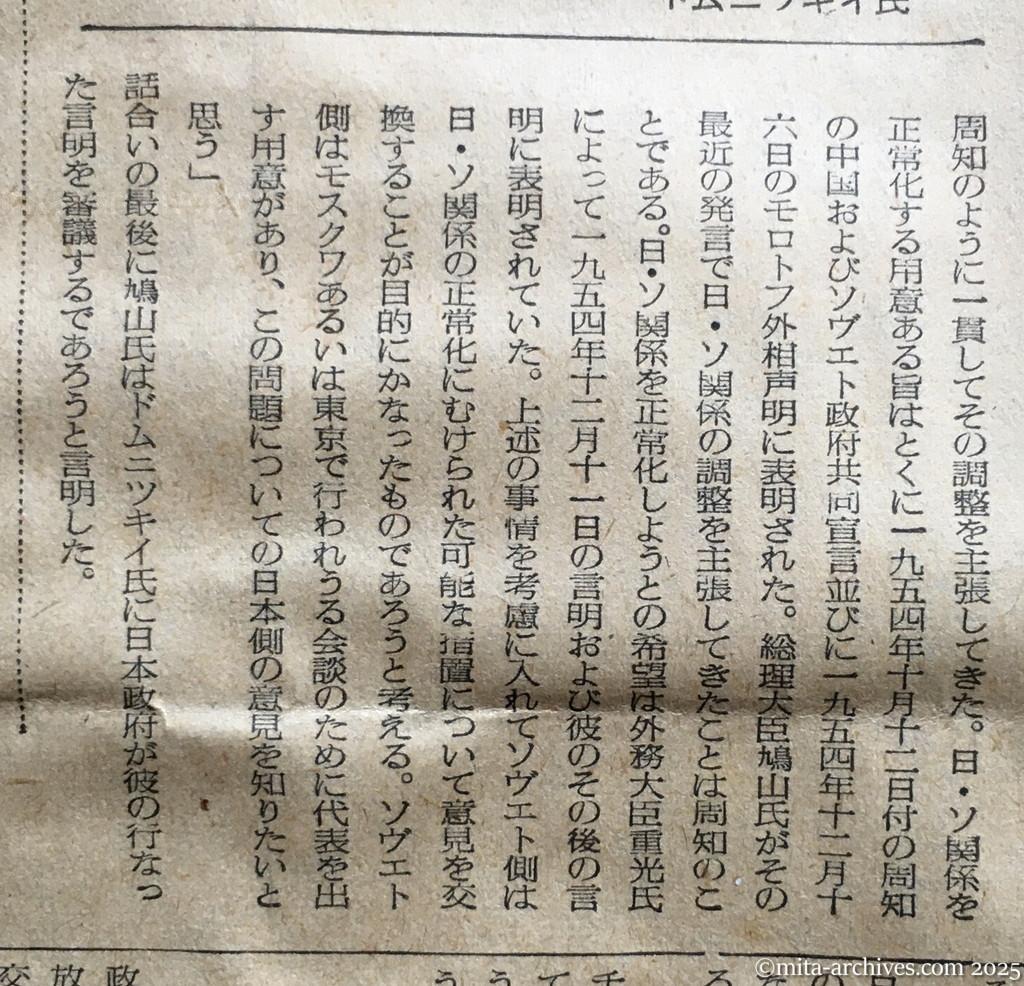 ドムニツキイ氏
周知のように一貫してその調整を主張してきた。日・ソ関係を
正常化する用意ある旨はとくに一九五四年十月十二日付の周知
の中国およびソヴエト政府共同宣言並びに一九五四年十二月十
六日のモロトフ外相声明に表明された。総理大臣鳩山氏がその
最近の発言で日・ソ関係の調整を主張してきたことは周知のこ
とである。日・ソ関係を正常化しようとの希望は外務大臣重光氏
によって一九五四年十二月十一日の言明および彼のその後の言
明に表明されていた。上述の事情を考慮に入れてソヴエト側は
日・ソ関係の正常化にむけられた可能な措置について意見を交
換することが目的にかなったものであろうと考える。ソヴエト
側はモスクワあるいは東京で行われうる会談のために代表を出
す用意があり、この問題についての日本側の意見を知りたいと
思う」
話合いの最後に鳩山氏はドムニツキイ氏に日本政府が彼の行なっ
た言明を審議するであろうと言明した。
©mita-archives.com 2025